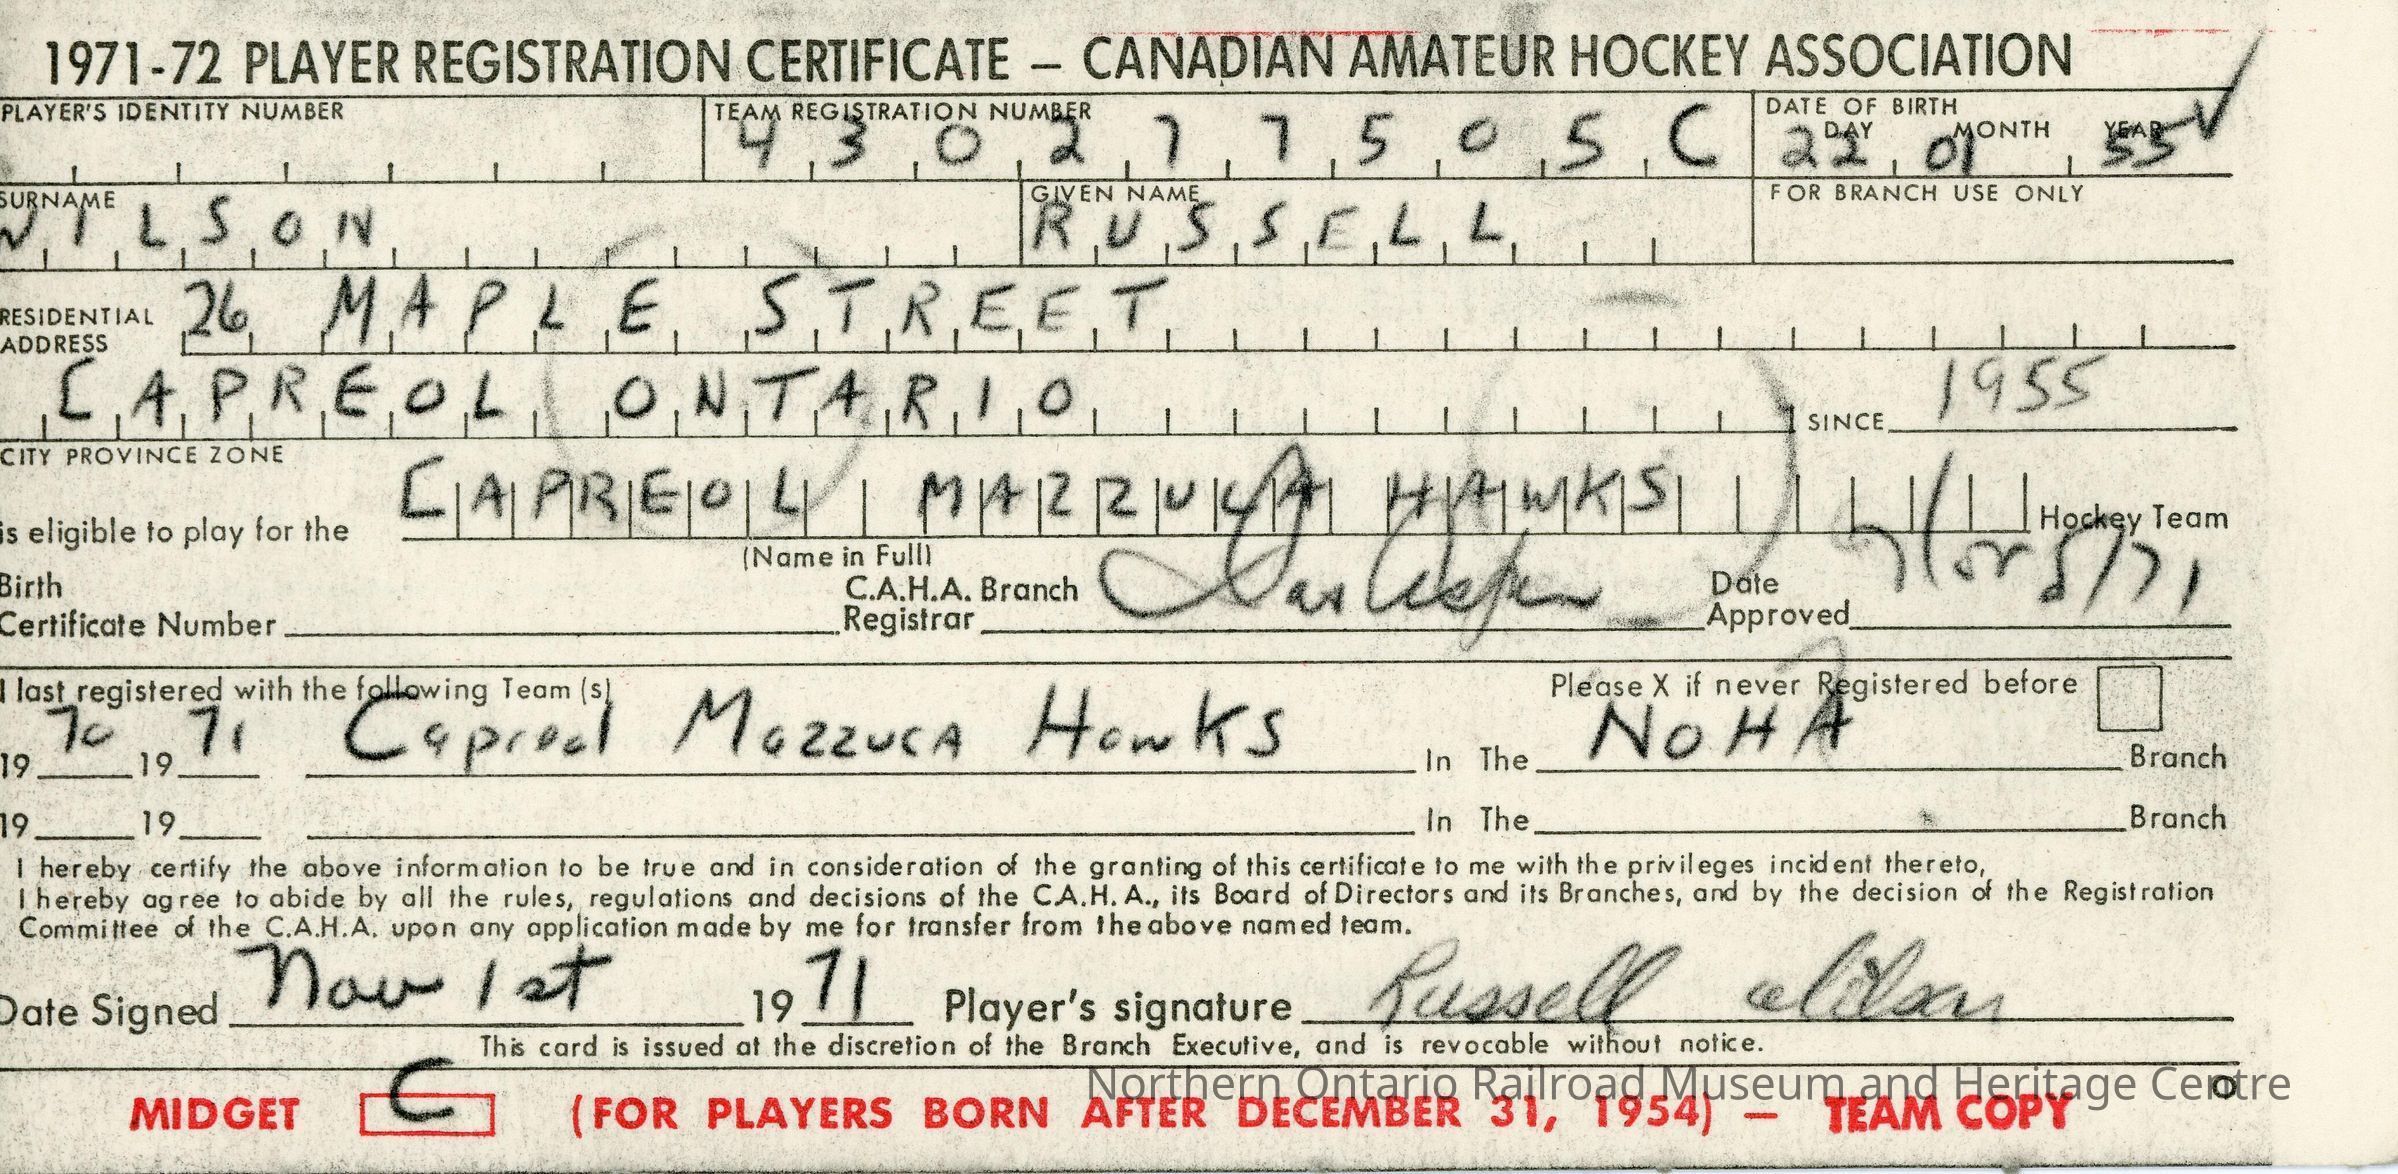 1971-72 PLAYER REGISTRATION CERTIFICATE – CANADIAN AMATEUR HOCKEY ASSOCIATION
PLAYER'S IDENTITY NUMBER TEAM REGISTRATION NUMBER DATE OF BIRTH
DAY MONTH YEAR
430277505C 22 01 55
SURNAME GIVEN NAME FOR BRANCH USE ONLY
WILSON RUSSELL
RESIDENTIAL ADDRESS 26 MAPLE STREET
CAPREOL ONTARIO SINCE 1955
CITY PROVINCE ZONE
is eligible to play for the CAPREOL MAZZUCA HAWKS Hockey Team
(Name in Full)
Birth Certificate Number C.A.H.A. Branch Registrar Date Approved
I last registered with the following Team (s) Please X if never Registered before
19 70 19 71 Capreol Mazzuca Hawks In The NOHA Branch
19 19 In The Branch
I hereby certify the above information to be true and in consideration of the granting of this certificate to me with the privileges incident thereto,
I hereby agree to abide by all the rules, regulations and decisions of the C.A.H.A., its Board of Directors and its Branches, and by the decision of the Registration
Committee of the C.A.H.A. upon any application made by me for transfer from the above named team.
Date Signed Nov 1st 19 71 Player's signature Russell Wilson
This card is issued at the discretion of the Branch Executive, and is revocable without notice.
Northern Ontario Railroad Museum and Heritage Centre
MIDGET C (FOR PLAYERS BORN AFTER DECEMBER 31, 1954) – TEAM COPY